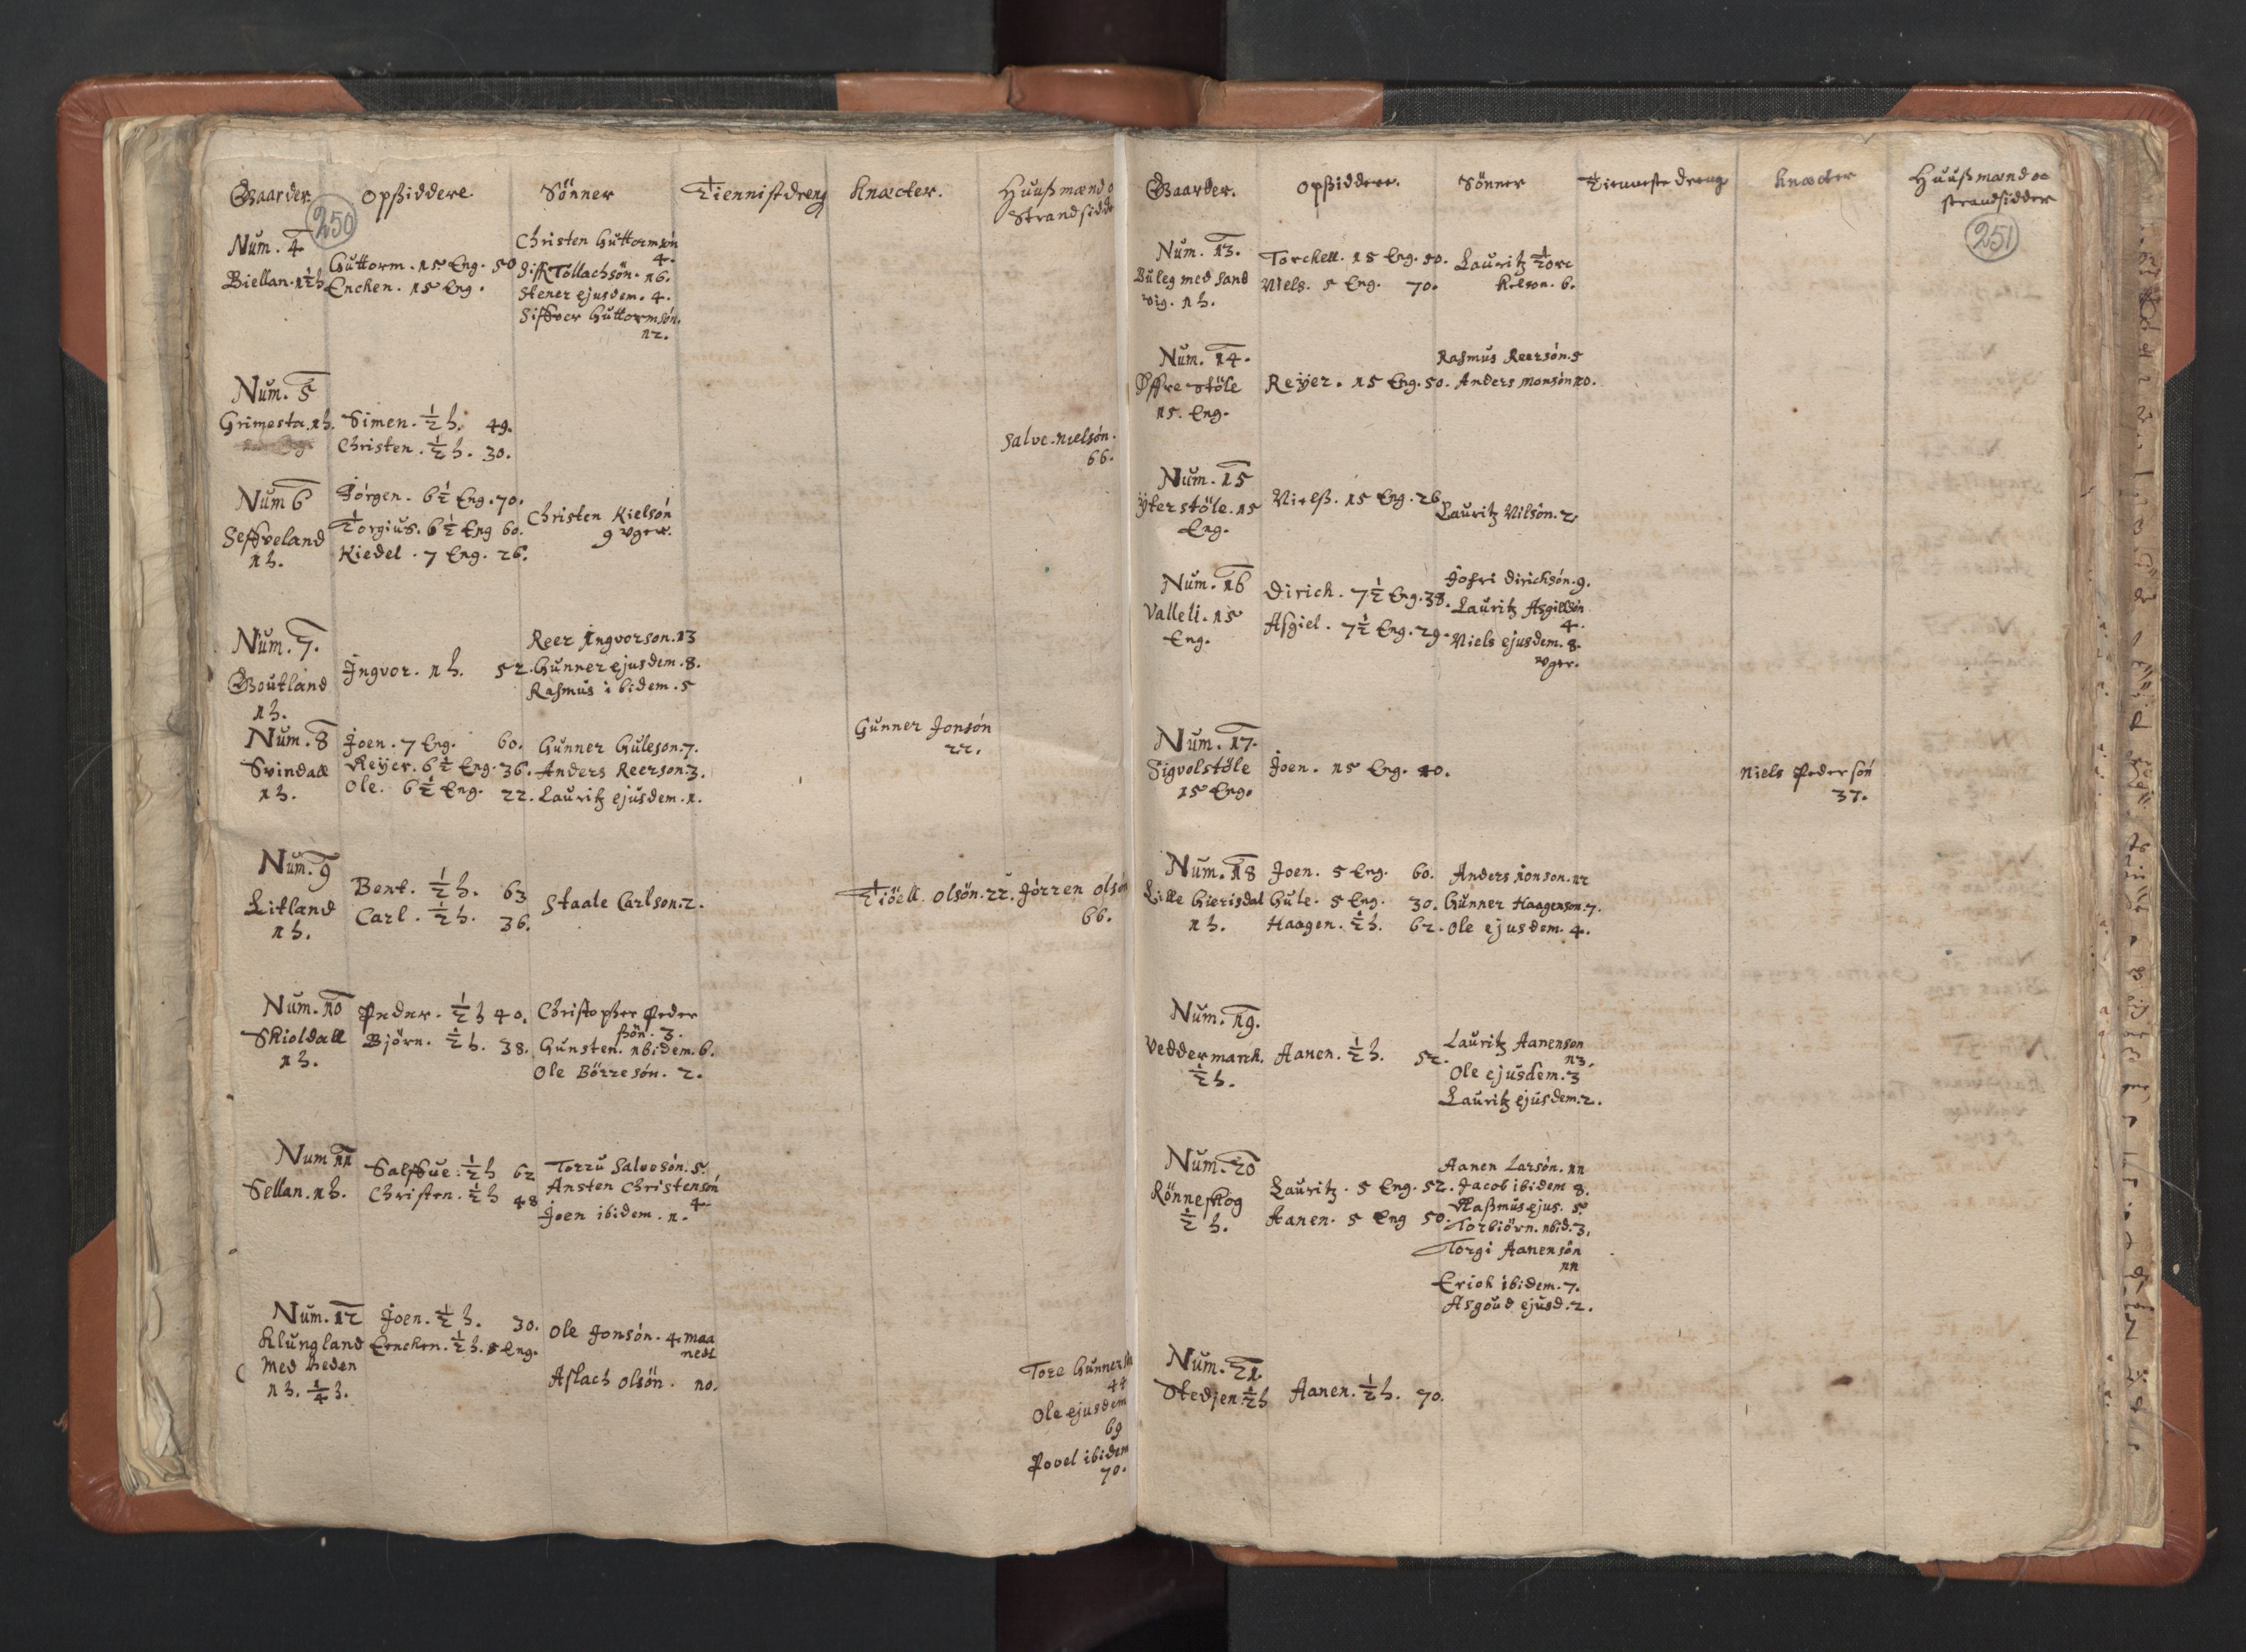 Gaarder.
Opsiddere
Sönner
Tiennistdreng
Knæcter.
Huusmænd o
Strandsidde
250
Num. 4
Biellan. 1½ h.
Guttorm. 15 Eng. 50
Enchen. 15 Eng.
Christen Guttormsön
4.
Siff Tollachsön. 16.
Stener ejusdem. 4.
Siffver Guttormsön.
12.
Num. 5
Grimesta. 1 h.
Simen. ½ h. 49.
Christen. ½ h. 30.
Salve Nielsón.
66.
Num 6
Seffveland
1 h.
Jórgen. 6½ Eng. 70.
Torgius. 6½ Eng 60.
Kiedel. 7 Eng. 26.
Christen Kielsón
9 vger.
Num. 7.
Goutland
1 h.
Jngvor. 1 h. 52.
Reer Jngvorson. 13
Gunner ejusdem. 8.
Rasmus ibidem. 5
Num. 8
Svindall
1 h.
Joen. 7 Eng. 60.
Reijer. 6½ Eng. 36.
Ole. 6½ Eng. 22.
Gunner Guleson. 7.
Anders Reerson. 3.
Lauritz ejusdem. 1.
Gunner Jonsón
22.
Num. 9
Litland
1 h.
Bent. ½ h. 63
Carl. ½ h. 36.
Staale Carlson. 2.
Tiöell Olsön. 22.
Jórren Olsön
66.
Num. 10
Skioldall
1 h.
Peder. ½ h 40.
Björn. ½ h. 38.
Christopher Peder
sön. 3.
Gunsten. ibidem. 6.
Ole Börresón. 2.
Num 11
Sellan. 1 h.
Salffue. ½ h 62
Christen. ½ h 48
Torru Salvesón. 5.
Ansten Christensón
4.
Joen ibidem. 1.
Num. 12
Klungland
med Heden
1 h. ¼ h.
Joen. ½ h. 30.
Eenchen. ½ h. 8 Eng.
Ole Jonsón. 4. maa
nedt
Aslach Olsön. 10.
Tore Gunners
44
Ole ejusdem
69
Povel ibidem
70.
Gaarder.
Opsiddere.
Sönner
Tienneste dreng
Knæcter
Huusmænd oc
strandsidder
251
Num. 13.
Buleg med Sand
vig. 1 h.
Torchell. 15 Eng. 50.
Niels. 5 Eng. 70.
Lauritz Torc
kelson. 6.
Num. 14.
Öffre Stöle
15. Eng.
Reÿer. 15 Eng. 50.
Rasmus Reersón. 5
Anders Monsón 10.
Num. 15
Ÿter stöle. 15
Eng.
Nielss. 15 Eng. 26
Lauritz Nilsön. 2.
Num. 16
Valleli. 15
Eng.
Dirich. 7½ Eng. 38.
Assgiel. 7½ Eng. 29.
Josfri Dirichsón. 9.
Lauritz Asgillsön
4.
Niels ejusdem. 8.
vger.
Num. 17.
Sigvolstöle
15 Eng.
Joen. 15 Eng. 40.
Niels Pedersón
37.
Num. 18
Lille Gierisdal
1 h.
Joen. 5 Eng. 60.
Gule. 5 Eng. 30.
Haagen. ½ h. 62.
Anders Jonson. 12
Gunner Haagenson. 7.
Ole ejusdem. 4.
Num. 19.
Veddermarck.
½ h.
Aanen. ½ h. 52.
Lauritz Aanenson
13.
Ole ejusdem. 3
Lauritz ejusdem. 2.
Num. 20
Rönneskog
½ h.
Lauritz. 5 Eng. 52.
Aanen. 5 Eng 50.
Aanen Larsón. 11
Jacob ibidem 8.
Rassmus ejus. 5.
Torbiörn. ibid. 3.
Torgi Aanensön
11
Erich ibidem. 7.
Asgoud ejusd. 2.
Num. 21
Stedjen. ½ h
Aanen. ½ h. 70.